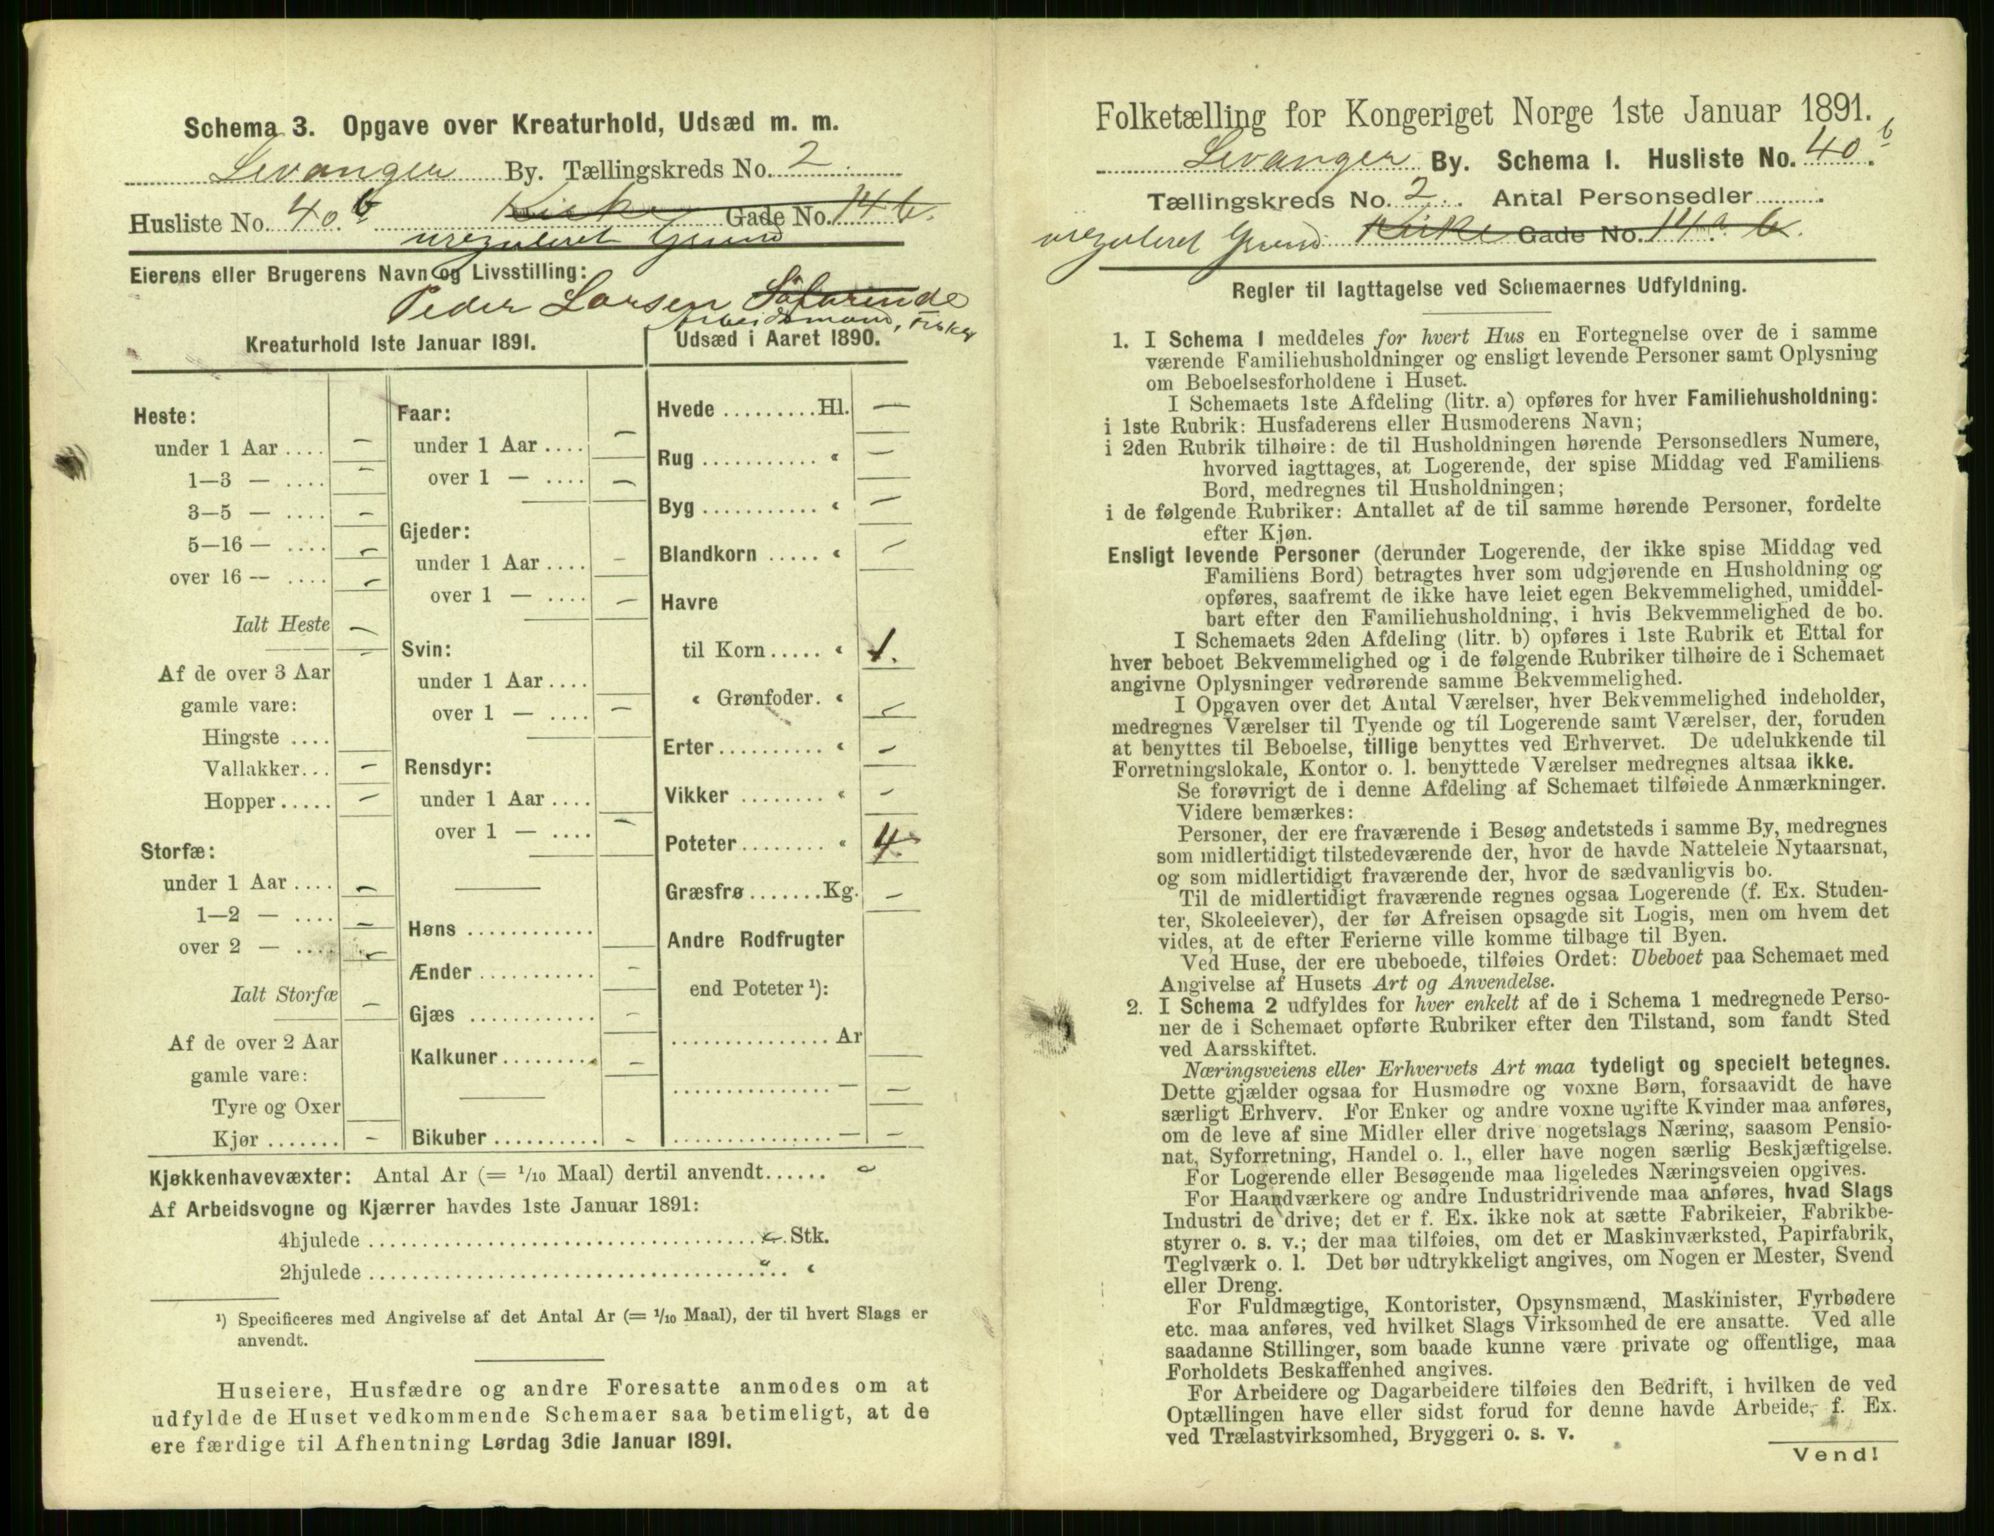 Schema 3. Opgave over Kreaturhold, Udsæd m. m.
Levanger By. Tællingskreds No. 2
Husliste No. 40 b. Kirke Gade No. 14 b.
ureguleret Grund
Eierens eller Brugerens Navn og Livsstilling:
Peder Larsen Söfarende
Arbeidsmand, Fisker
Kreaturhold 1ste Januar 1891.
Heste:
under 1 Aar .... —
1—3 — .... —
3—5 — .... —
5—16 — .... —
over 16 — .... —
Ialt Heste —
Af de over 3 Aar —
gamle vare:
Hingste ....
Vallakker... —
Hopper..... —
Storfæ:
under 1 Aar .... —
1—2 — .... —
over 2 — .... —
Ialt Storfæ —
Af de over 2 Aar
gamle vare:
Tyre og Oxer
Kjør ....... —
Faar:
under 1 Aar .... —
over 1 — .... —
Gjeder:
under 1 Aar .... —
over 1 — .... —
Svin:
under 1 Aar ....
over 1 — .... —
Rensdyr:
under 1 Aar ....
over 1 — .... —
Høns ............
Ænder ........... —
Gjæs ............ —
Kalkuner......... —
Bikuber .......... —
Udsæd i Aaret 1890.
Hvede .........Hl. —
Rug ........... « —
Byg ........... « —
Blandkorn ..... « —
Havre
til Korn ..... « 1.
« Grønfoder. « —
Erter.......... « —
Vikker ........ « —
Poteter........ « 4.
Græsfrø.......Kg. —
Andre Rodfrugter
end Poteter ¹):
............... Ar
............... — —
............... — —
Kjøkkenhavevæxter: Antal Ar (= 1/10 Maal) dertil anvendt...... —
Af Arbeidsvogne og Kjærrer havdes 1ste Januar 1891:
4hjulede ........................................ Stk.
2hjulede ........................................ «
¹) Specificeres med Angivelse af det Antal Ar (= 1/10 Maal), der til hvert Slags er
anvendt.
Huseiere, Husfædre og andre Foresatte anmodes om at
udfylde de Huset vedkommende Schemaer saa betimeligt, at de
ere færdige til Afhentning Lørdag 3die Januar 1891.
Folketælling for Kongeriget Norge 1ste Januar 1891.
Levanger By. Schema 1. Husliste No. 40 b.
Tællingskreds No. 2. Antal Personsedler .........
ureguleret Grund Kirke Gade No. 14 a b.
Regler til Iagttagelse ved Schemaernes Udfyldning.
1. I Schema 1 meddeles for hvert Hus en Fortegnelse over de i samme
værende Familiehusholdninger og ensligt levende Personer samt Oplysning
om Beboelsesforholdene i Huset.
I Schemaets 1ste Afdeling (litr. a) opføres for hver Familiehusholdning:
i 1ste Rubrik: Husfaderens eller Husmoderens Navn;
i 2den Rubrik tilhøire: de til Husholdningen hørende Personsedlers Numere,
hvorved iagttages, at Logerende, der spise Middag ved Familiens
Bord, medregnes til Husholdningen;
i de følgende Rubriker: Antallet af de til samme hørende Personer, fordelte
efter Kjøn.
Ensligt levende Personer (derunder Logerende, der ikke spise Middag ved
Familiens Bord) betragtes hver som udgjørende en Husholdning og
opføres, saafremt de ikke have leiet egen Bekvemmelighed, umiddel-
bart efter den Familiehusholdning, i hvis Bekvemmelighed de bo.
I Schemaets 2den Afdeling (litr. b) opføres i 1ste Rubrik et Ettal for
hver beboet Bekvemmelighed og i de følgende Rubriker tilhøire de i Schemaet
angivne Oplysninger vedrørende samme Bekvemmelighed.
I Opgaven over det Antal Værelser, hver Bekvemmelighed indeholder,
medregnes Værelser til Tyende og til Logerende samt Værelser, der, foruden
at benyttes til Beboelse, tillige benyttes ved Erhvervet. De udelukkende til
Forretningslokale, Kontor o. l. benyttede Værelser medregnes altsaa ikke.
Se forøvrigt de i denne Afdeling af Schemaet tilføiede Anmærkninger.
Videre bemærkes:
Personer, der ere fraværende i Besøg andetsteds i samme By, medregnes
som midlertidigt tilstedeværende der, hvor de havde Natteleie Nytaarsnat,
og som midlertidigt fraværende der, hvor de sædvanligvis bo.
Til de midlertidigt fraværende regnes ogsaa Logerende (f. Ex. Studen-
ter, Skoleelever), der før Afreisen opsagde sit Logis, men om hvem det
vides, at de efter Ferierne ville komme tilbage til Byen.
Ved Huse, der ere ubeboede, tilføies Ordet: Ubeboet paa Schemaet med
Angivelse af Husets Art og Anvendelse.
2. I Schema 2 udfyldes for hver enkelt af de i Schema 1 medregnede Perso-
ner de i Schemaet opførte Rubriker efter den Tilstand, som fandt Sted
ved Aarsskiftet.
Næringsveiens eller Erhvervets Art maa tydeligt og specielt betegnes.
Dette gjælder ogsaa for Husmødre og voxne Børn, forsaavidt de have
særligt Erhverv. For Enker og andre voxne ugifte Kvinder maa anføres,
om de leve af sine Midler eller drive nogetslags Næring, saasom Pensio-
nat, Syforretning, Handel o. l., eller have nogen særlig Beskjæftigelse.
For Logerende eller Besøgende maa ligeledes Næringsveien opgives.
For Haandværkere og andre Industridrivende maa anføres, hvad Slags
Industri de drive; det er f. Ex. ikke nok at sætte Fabrikeier, Fabrikbe-
styrer o. s. v.; der maa tilføies, om det er Maskinværksted, Papirfabrik,
Teglværk o. l. Det bør udtrykkeligt angives, om Nogen er Mester, Svend
eller Dreng.
For Fuldmægtige, Kontorister, Opsynsmænd, Maskinister, Fyrbødere
etc. maa anføres, ved hvilket Slags Virksomhed de ere ansatte. Ved alle
saadanne Stillinger, som baade kunne være private og offentlige, maa
Forholdets Beskaffenhed angives.
For Arbeidere og Dagarbeidere tilføies den Bedrift, i hvilken de ved
Optællingen have eller sidst forud for denne havde Arbeide, f. Ex.
ved Trælastvirksomhed, Bryggeri o. s. v.
Vend!